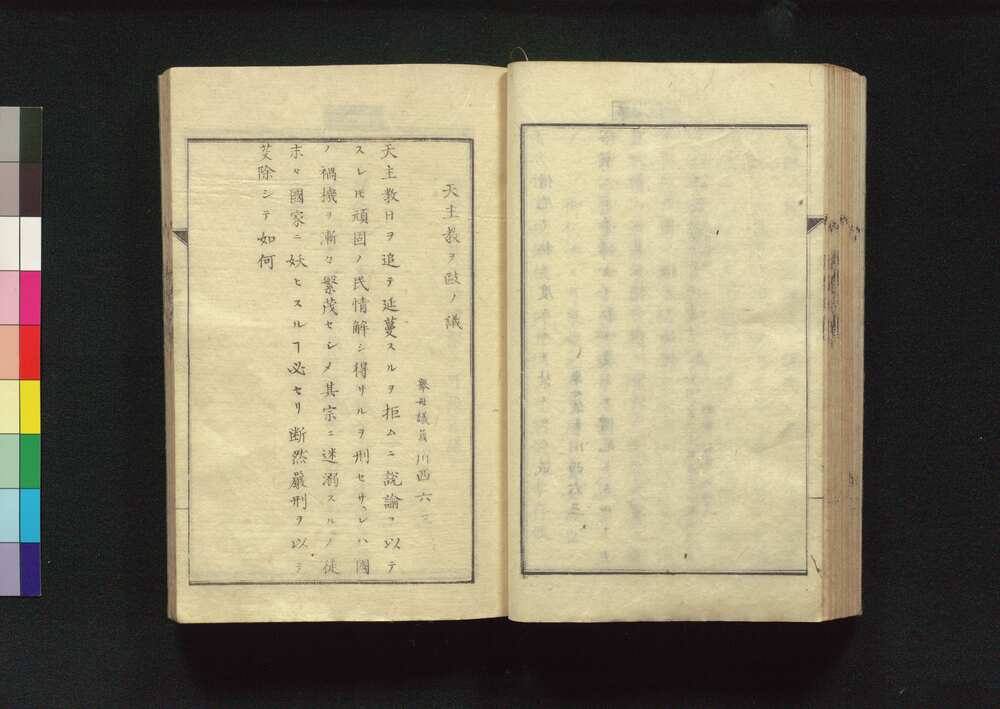 天主教ヲ㱾ノ議
擧母議員川西六三
天主教日ヲ追テ延蔓スルヲ拒ムニ説諭ヲ以テ
スレㇳモ頑固ノ民情解シ得サルヲ刑セサレハ國
ノ禍機ヲ漸々繁茂セシメ其宗ニ迷溺スルノ徒
末々國家ニ妖ヒスルヿ必セリ断然嚴刑ヲ以テ
芟除シテ如何